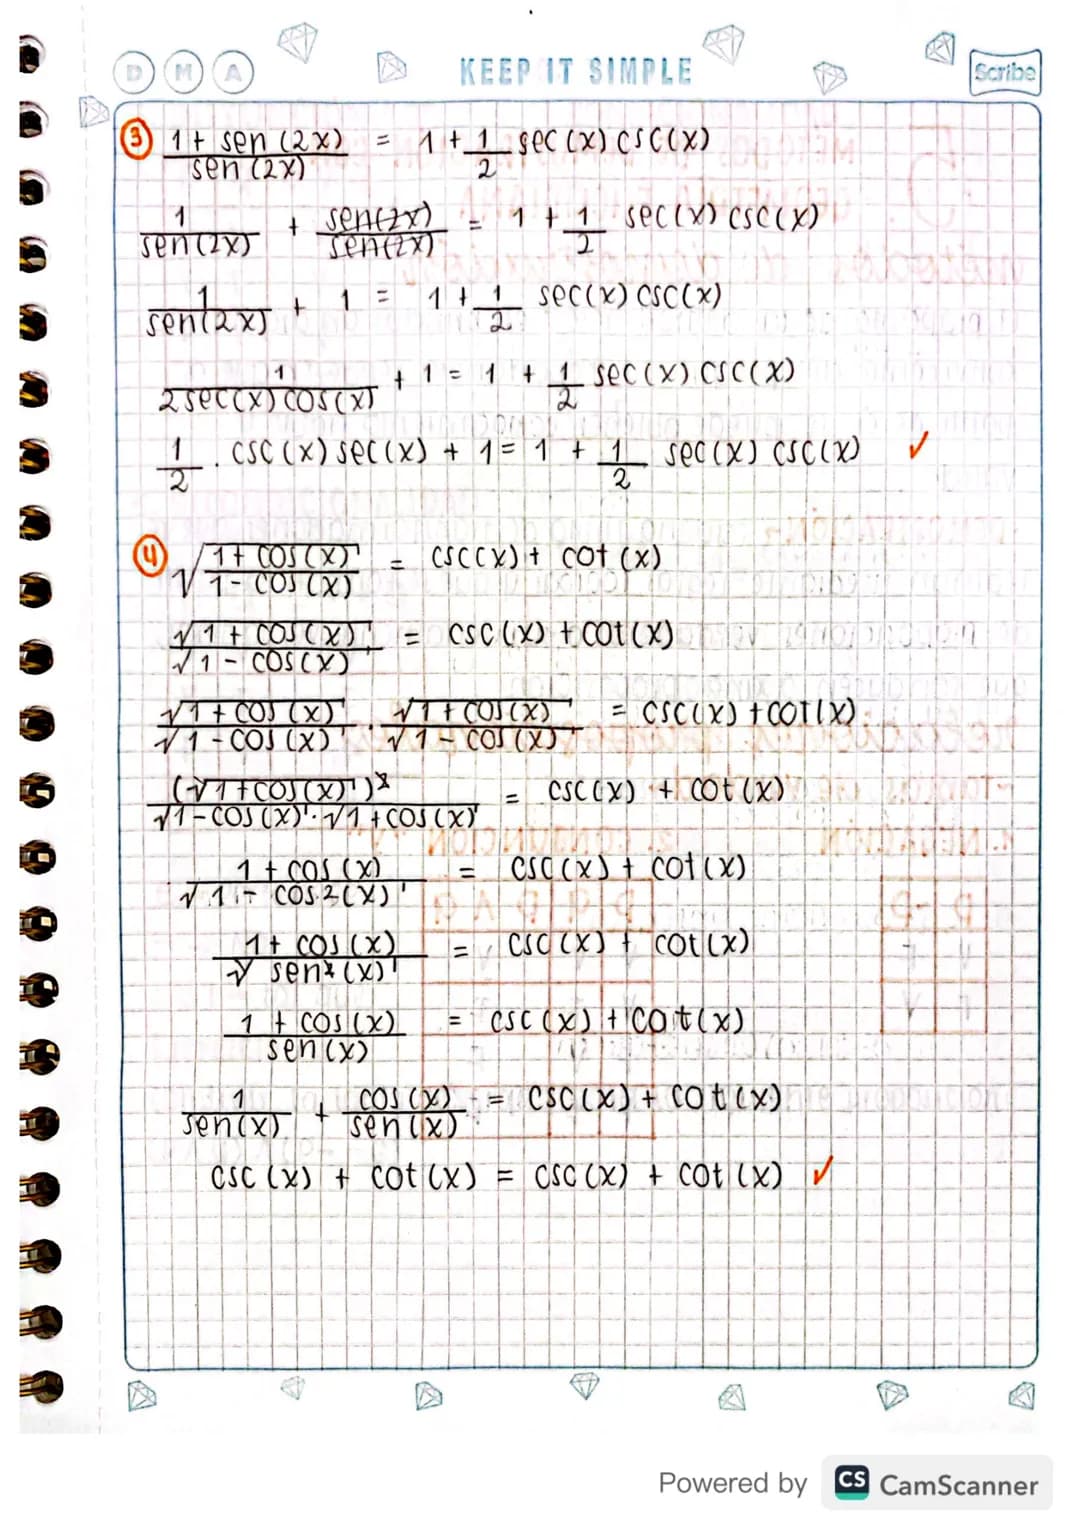 D M A KEEP IT SIMPLE Scribe
③ (1 + sen (2x))/(sen (2x)) = 1 + 1/2 sec (x) csc(x)
1/(sen(2x)) + (sen(2x))/(sen(2x)) = 1 + 1/2 sec(x) csc(x)
1/(sen(2x)) + 1 = 1 + 1/2 sec(x) csc(x)
1/(2sec(x) cos(x)) + 1 = 1 + 1/2 sec(x) csc(x)
1/2 . csc (x) sec(x) + 1 = 1 + 1/2 sec(x) csc(x) ✓
④ √((1 + cos(x))/(1 - cos(x))) = csc(x) + cot (x)
(√(1 + cos(x)))/(√(1 - cos(x))) = csc(x) + cot(x)
(√(1 + cos (x)))/(√(1 - cos (x))) . (√(1 + cos(x)))/(√(1 - cos(x))) = csc(x) + cot(x)
((√(1 + cos(x)))²)/(√(1 - cos(x)) . √(1 + cos(x))) = csc(x) + cot(x)
(1 + cos (x))/(√(1 - cos 2(x))) = csc(x) + cot(x)
(1 + cos (x))/(√(sen² (x))) = csc(x) + cot(x)
(1 + cos(x))/(sen (x)) = csc (x) + cot(x)
1/(sen(x)) + (cos (x))/(sen (x)) = csc(x) + cot(x)
csc (x) + cot(x) = csc (x) + cot (x) ✓
Powered by CS CamScanner